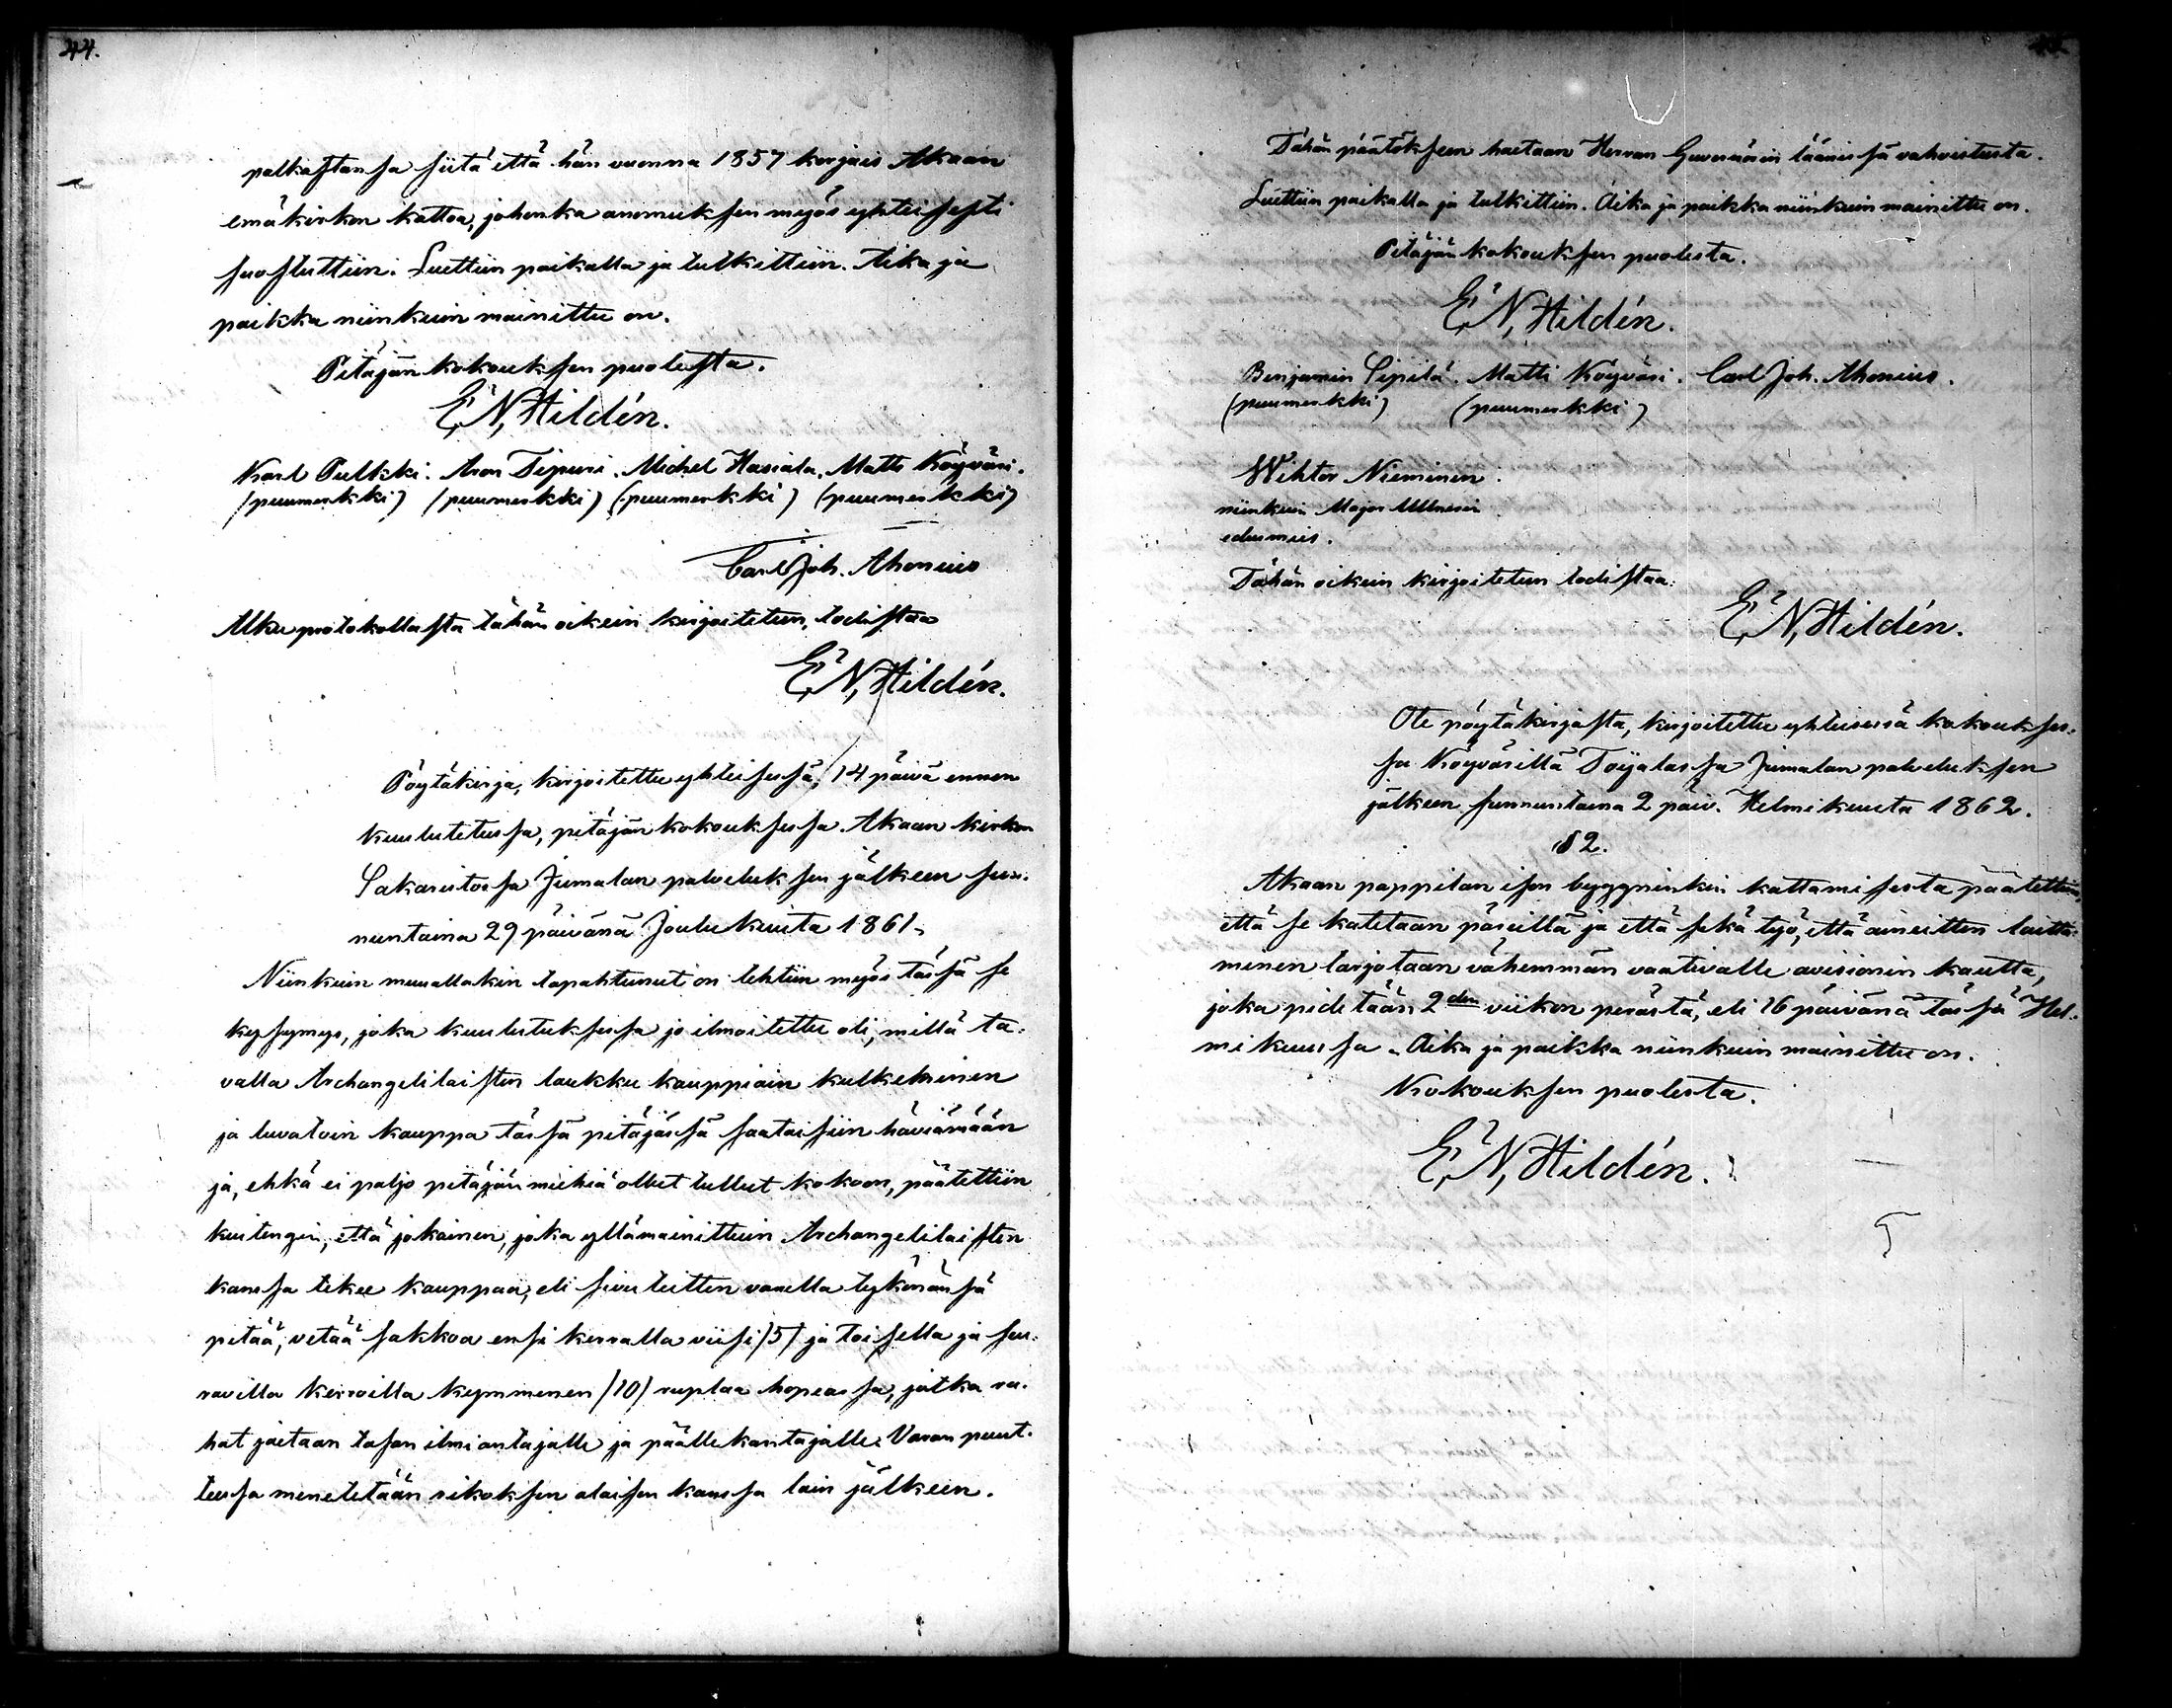 44.
palkastansa siitä että hän vuonna 1857 korjais Akaan
emäkirkon kattoa, johonka anomuksen myös yhteisesti
suostuttiin. Luettiin paikalla ja tutkittiin. Aika ja
paikka niinkuin mainittu on.
Pitäjän kokouksen puolesta.
E. N. Hildén.
Karl Pulkki. Aron Tipuri. Michel Hasiala. Matti Köyväri.
(puumerkki) (puumerkki) (puumerkki) (puumerkki)
Carl Joh. Ahonius
Alku protokollasta tähän oikein kirjoitetun, todistaa
E. N. Hildén.
Pöytäkirja, kirjoitettu yhteisessä, 14 päivä ennen
kuulutetussa, pitäjän kokouksessa Akaan kirkon
Sakaristossa Jumalan palveluksen jälkeen sun-
nuntaina 29 päivänä Joulukuuta 1861.
Niinkuin muuallakin tapahtunut on tehtiin myös tässä se
kysymys, joka kuulutuksessa jo ilmoitettu oli, millä ta-
valla Archangelilaisten laukku kauppiain kulkeminen
ja luvatoin kauppa tässä pitäjässä saataisiin häviämään
ja, ehkä ei paljo pitäjän miehiä ollut tullut kokoon, päätettiin
kuitengin, että jokainen, joka yllämainittuin Archangelilaisten
kanssa tekee kauppaa, eli sivuteitten varrella tykönänsä
pitää, vetää sakkoa ensi kerralla viisi /5/ ja toisella ja seu-
ravilla kerroilla kymmenen /10/ ruplaa hopeassa, jotka ra-
hat jaetaan tasan ilmiantajalle ja päällekantajalle. Varan puut-
teessa menetetään rikoksen alaisen kanssa lain jälkeen.
Tähän päätökseen haetaan Herran Guvernörin läänissä vahvistusta.
Luettiin paikalla ja tutkittiin. Aika ja paikka niinkuin mainittu on.
Pitäjän kokouksen puolesta.
E. N. Hildén.
Benjamin Sipilä. Matti Köyväri. Carl Joh. Ahonius.
(puumerkki) (puumerkki)
Wihtor Nieminen.
niinkuin Major
edusmies.
Tähän oikein kirjoitetun todistaa:
E. N. Hildén.
Ote pöytäkirjasta, kirjoitettu yhteisessä kokoukses-
sa Köyvärillä Toijalassa Jumalan palveluksen
jälkeen sunnuntaina 2 päiv. Helmikuuta 1862.
§ 2.
Akaan pappilan ison byggninkin kattamisesta päätettiin,
että se katetaan päreillä ja että sekä työ, että aineitten laitta-
minen tarjotaan vähemmän vaativalle avisionin kautta,
joka pidetään 2den viikon perästä, eli 16 päivänä tässä Hel-
mikuussa. Aika ja paikka niinkuin mainittu on.
Kokouksen puolesta.
E. N. Hildén.